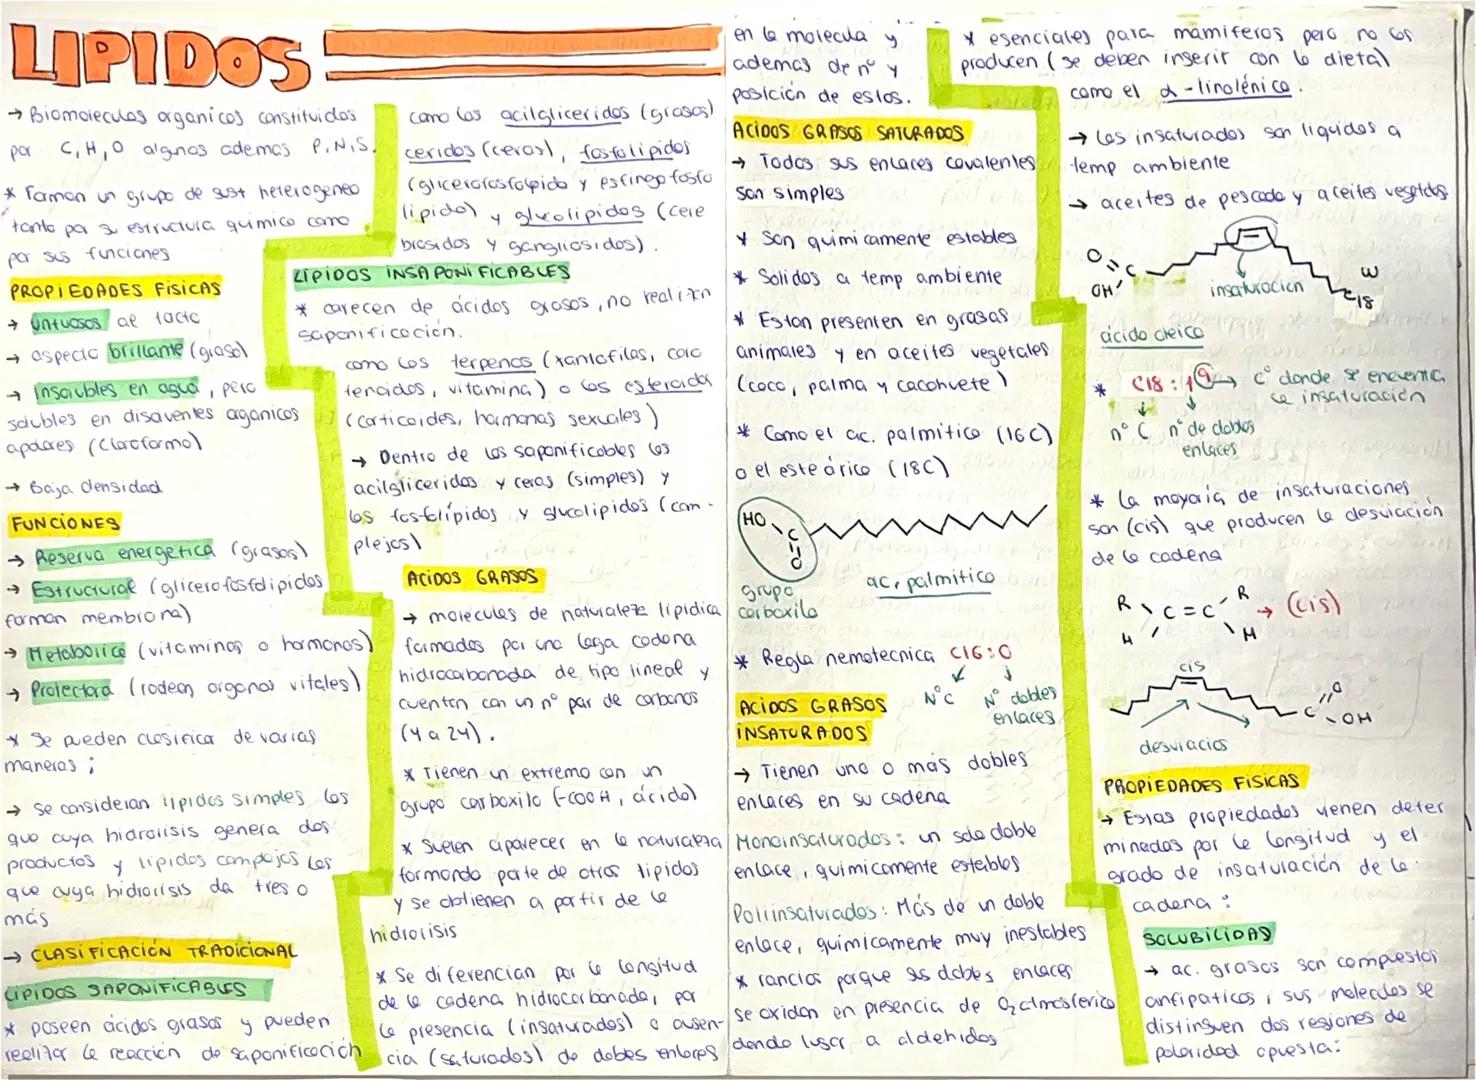 LIPIDOS
→ Biomoleculas organicas constituidas
por C, H, O algunos ademas P, N, S.
* Forman un grupo de sust heterogeneo
tanto por su estructura quimica como
por sus funciones
PROPIEDADES FISICAS
→ untuosos al tacto
→ aspecto brillante (grasa)
→ Insolubles en agua, pero
solubles en disolventes organicos
apolares (Cloroformo)
→ Baja densidad
FUNCIONES
→ Reserva energetica (grasas)
→ Estructural (glicerofosfolipidos
forman membrana)
→ Metabolica (vitaminas o hormonas)
→ Protectora (rodean organos vitales)
* Se pueden clasificar de varias
maneras ;
→ Se consideran lipidos simples los
que cuya hidrolisis genera dos
productos y lipidos complejos los
que cuya hidrolisis da tres o
más
→ CLASIFICACIÓN TRADICIONAL
LIPIDOS SAPONIFICABLES
* poseen ácidos grasos y pueden
realizar la reacción de saponificación
como los acilgliceridos (grasas)
ceridos (ceras), fosfolipidos
(glicerofosfolpido y esfingofosfo
lipido) y glucolipidos (cere
brosidos y gangliosidos).
LIPIDOS INSAPONIFICABLES
* carecen de ácidos grasos, no realizan
saponificación.
como los terpenos (xantofilas, caro
tenoides, vitamina) o los esteroides
(corticoides, hormonas sexuales)
→ Dentro de los saponificables los
acilgliceridos y ceras (simples) y
los fosfolípidos y glucolipidos (com-
plejos)
ACIDOS GRASOS
→ moleculas de naturaleza lipidica
formadas por una larga cadena
hidrocarbonada de tipo lineal y
cuentan con un nº par de carbonos
(4 a 24).
* Tienen un extremo con un
grupo carboxilo (-COOH, ácido)
* Suelen aparecer en la naturaleza
formando parte de otros lipidos
y se obtienen a partir de la
hidrolisis
* Se diferencian por la longitud
de la cadena hidrocarbonada, por
la presencia (insaturados) o ausen-
cia (saturados) de dobles enlaces
en la molecula y
ademas de nº y
posición de estos.
ACIDOS GRASOS SATURADOS
→ Todos sus enlaces covalentes
son simples
* Son quimicamente estables
* Solidos a temp ambiente
* Estan presenten en grasas
animales y en aceites vegetales
(coco, palma y cacahuete)
* Como el ac. palmitico (16C)
o el esteárico (18C)
HO
C
O
grupo
carboxilo
ac. palmitico
* Regla nemotecnica C16:0
NºC Nº dobles
enlaces
ACIDOS GRASOS
INSATURADOS
→ Tienen uno o más dobles
enlaces en su cadena
Monoinsaturados: un solo doble
enlace, quimicamente estables
Poliinsaturados: Más de un doble
enlace, quimicamente muy inestables
* rancios porque sus dobles enlaces
se oxidan en presencia de O₂ atmosferico
dando lugar a aldehidos
* esenciales para mamiferos pero no los
producen (se deben inserir con la dieta)
como el α-linolénico.
→ Los insaturados son liquidos a
temp ambiente
→ aceites de pescado y aceites vegetales
O
C
OH
insaturacion
ω
C18
ácido oleico
* C18:1 9 → Cº donde se encuentra
la insaturación
nº C nº de dobles
enlaces
* La mayoria de insaturaciones
son (cis) que producen la desviación
de la cadena
R R
C=C → (cis)
H H
cis
C
O
OH
desviacion
PROPIEDADES FISICAS
→ Estas propiedades vienen deter
minadas por la longitud y el
grado de insaturación de la
cadena :
SOLUBILIDAD
→ ac. grasos son compuestos
anfipaticos, sus moleculas se
distinguen dos regiones de
polaridad opuesta: